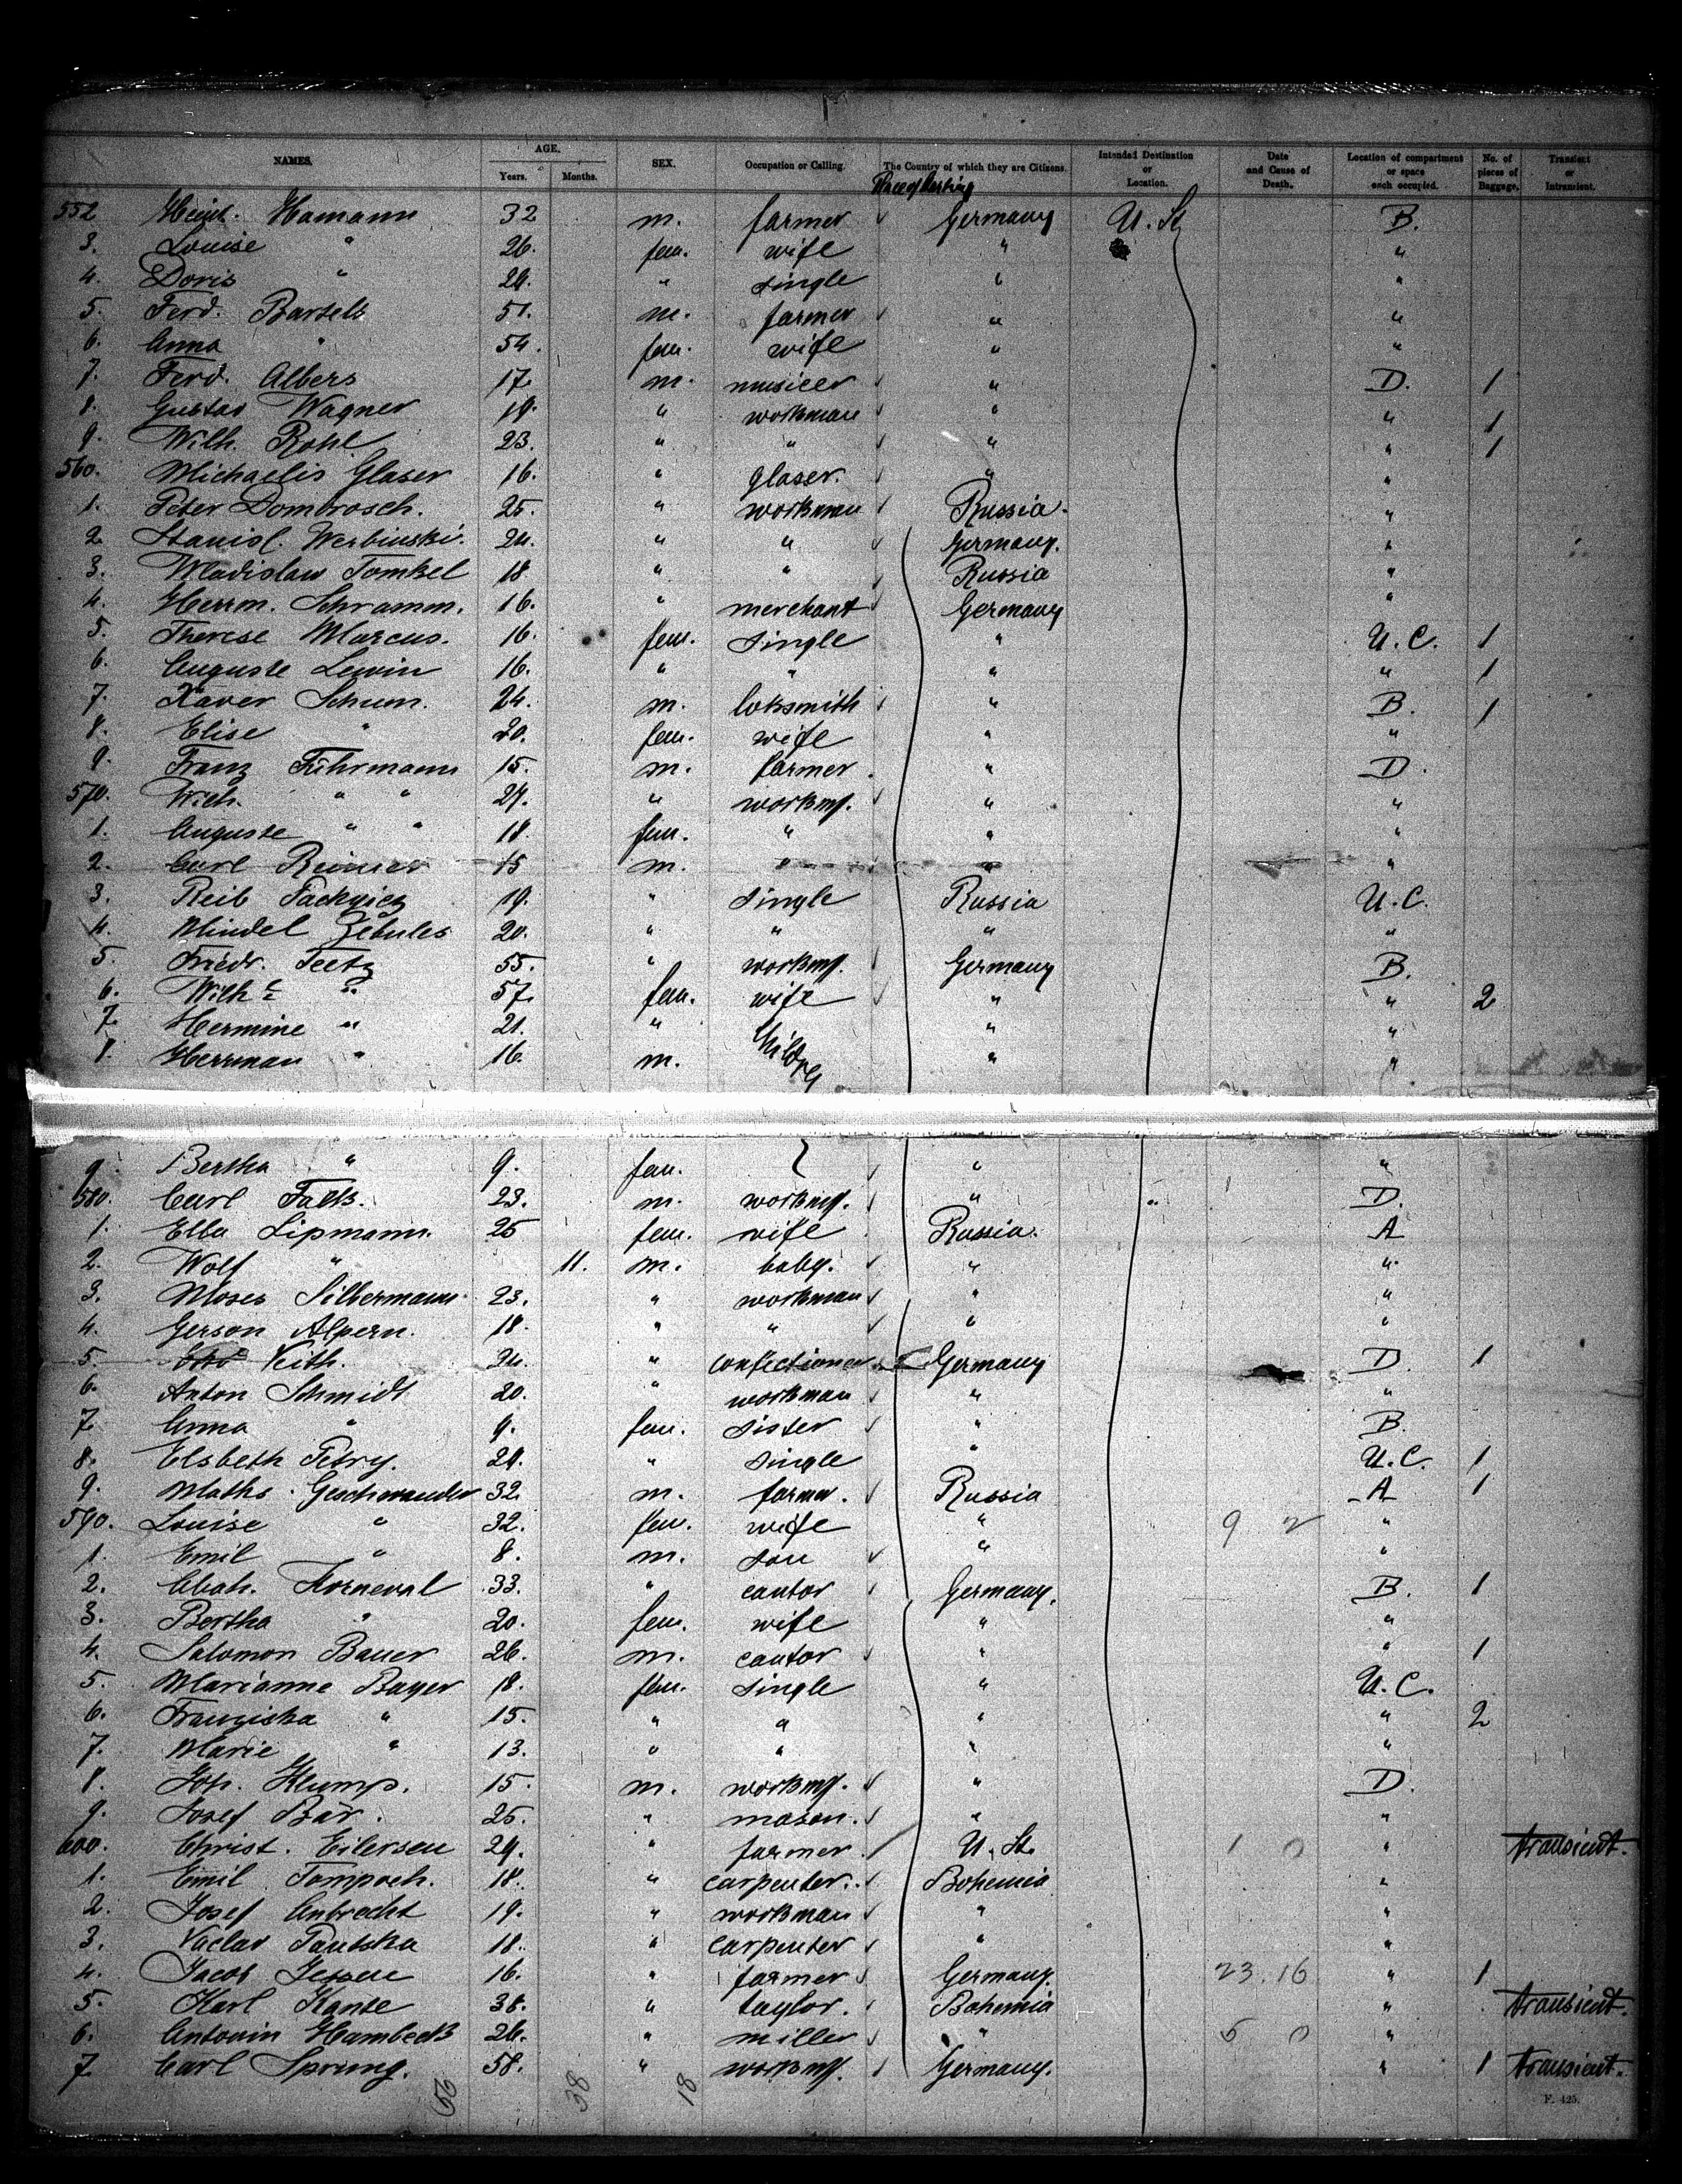 NAMES. AGE. SEX. Occupation or Calling. The Country of which they are Citizens. Intended Destination or Location. Date and Cause of Death. Location of compartment or space each occupied. No. of pieces of Baggage. Transient or Intransient.
Years. Months.
552 Hamann 32 m. farmer Germany U. St. B.
3. Louise " 26. fem. wife " "
4. Doris " single " "
5. Ferd. Bartels 51. m. farmer " "
6. Anna " 54. fem. wife " "
7. Ferd. Albers 17. m. musicer " D. 1
8. Gustav Wagner 19. " workman " " 1
9. Wilh. Rohl 23. " " " " 1
560. Michaelis Glaser 16. " glaser. " "
1. Peter Dombrosch. 25. " workman Russia. "
2. Stanisl. Werbinski. 24. " " Germany. "
3. Wladislaw Tomkel 18 " " Russia "
4. Herrm. Schramm. 16. " merchant Germany "
5. Therese Marcus. 16. fem. single " U. C. 1
6. Auguste Lewin 16. " " " " 1
7. Xaver Schum. 24. m. loksmith " B. 1
8. Elise " 20. fem. wife " "
9. Franz Fuhrmann 15. m. farmer " D.
570. " " " workmg. " "
1. Auguste " " 18. fem. " " "
2. Carl 15 m. " " "
3. Reib 19. " single Russia U. C.
4. Mindel Zebules 20. " " " "
5. Friedr. Teetz 55. " workmg. Germany B.
6. Wilhe " 57. fem. wife " " 2
7. Hermine " 21. " " "
8. Herrman " 16. m. " "
9. Bertha " 9. fem. " "
580. Carl Falk. 23. m. workmg. " " D.
1. Ella Lipmann. 25 fem. wife Russia. A
2. Wolf " 11. m. baby. " "
3. Moses Silbermann. 23. " workman " "
4. Gerson Alpern. 18. " " " "
5. Veith. 24. " confectioner Germany D. 1
6. Anton Schmidt 20. " workman " "
7. Anna " 9. fem. sister " B.
8. Elsbeth Petry. " single " U. C. 1
9. Maths. Geschwander 32. m. farmer. Russia A 1
590. Louise " 32. fem. wife " 9 2 "
1. Emil " 8. m. son " "
2. Korneval 33. " cantor Germany. B. 1
3. Bertha " 20. fem. wife " "
4. Salomon Bauer 26. m. cantor " " 1
5. Marianne Bayer 18. fem. single " U. C.
6. Franziska " 15. " " " " 2
7. Marie " 13. " " " "
8. Joh. Klump. 15. m. workmg. " D.
9. Josef Bär. 25. " mason. " "
600. Christ. Eilersen 29. " farmer. U. St. 1 0 " transient.
1. Emil 18. " carpenter. Bohemia "
2. Josef Anbrecht 19. " workman " "
3. Vaclav Pautska 18. " carpenter " "
4. Jacob Jessen 16. " farmer Germany. 23. 16 " 1
5. Karl 38. " taylor. Bohemia " transient.
6. Antonin Hambeck 26. " miller " 5 0 "
7. Carl Sprung. 58. " workmg. Germany. " 1 transient.
56 38 18
F. 425.